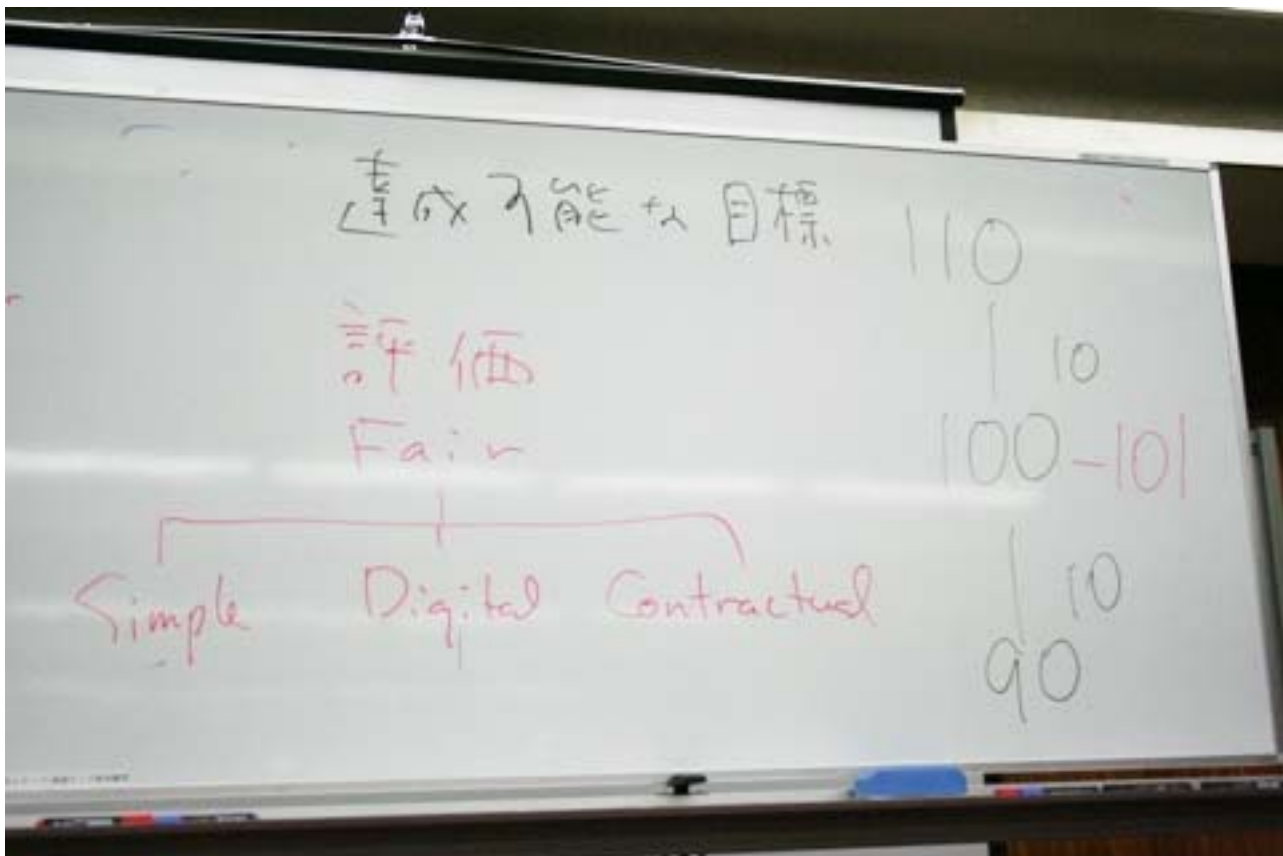 達成可能な目標
評価
Fair
Simple Digital Contractual
110
10
100-101
10
90